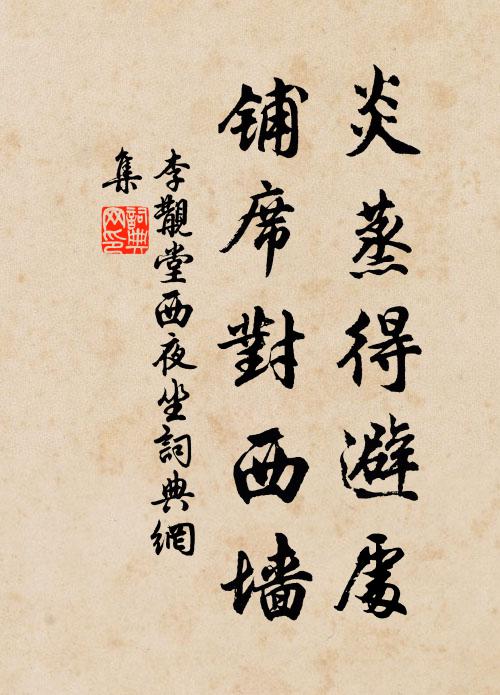 炎蒸得避處
鋪席對西墻
李覯堂西夜坐詞典網
集
詞典網印